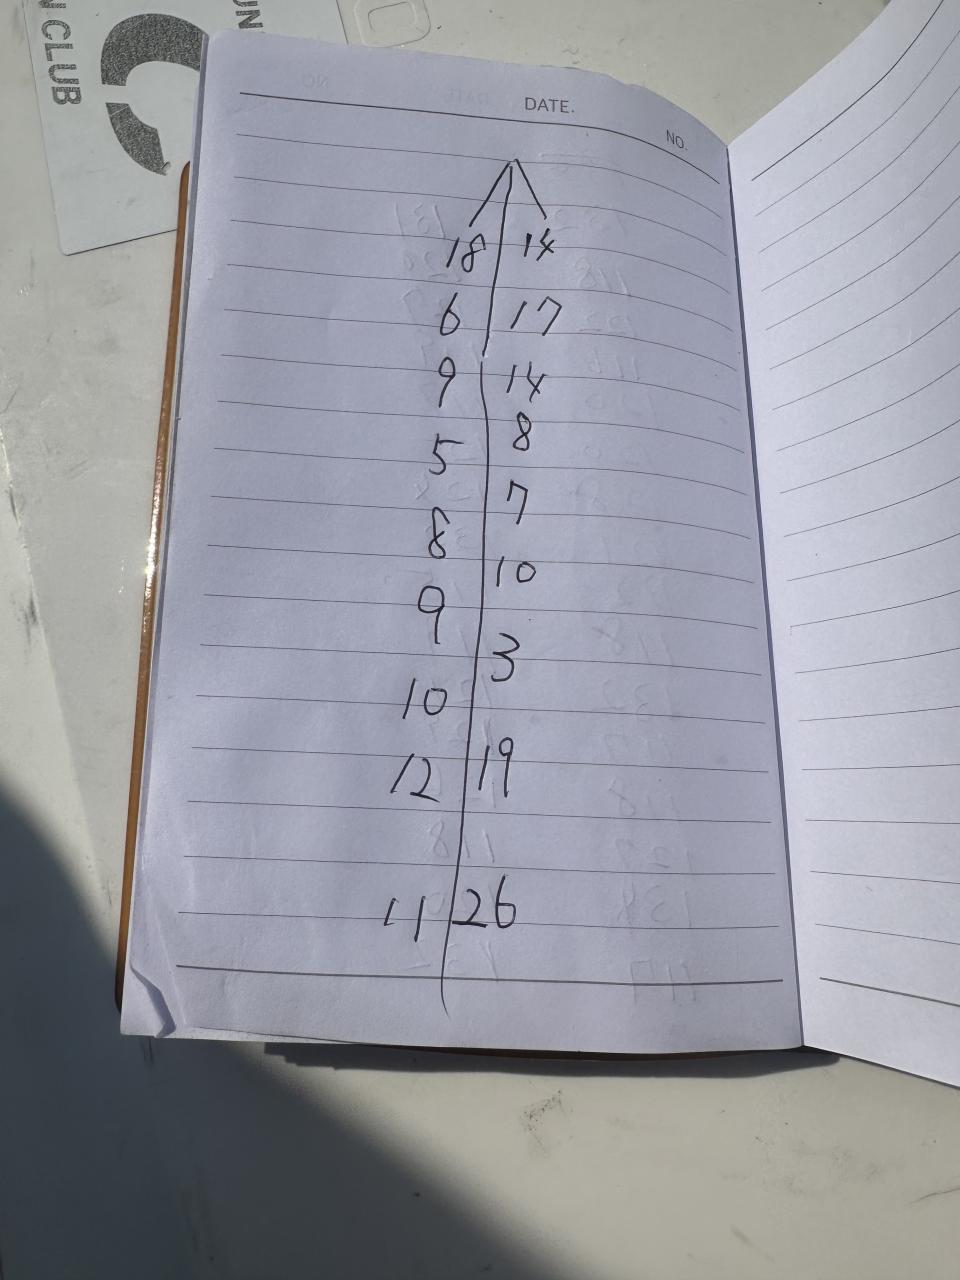 UN
N CLUB
DATE.
NO.
18 14
6 17
9 14
5 8
8 7
9 10
10 3
12 19
11 26